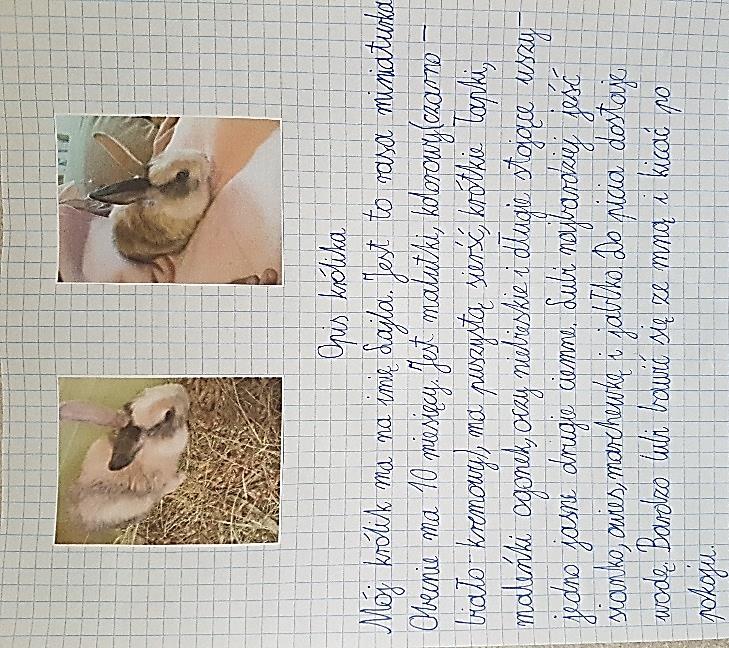 Opis królika
Mój królik ma na imię Lajla. Jest to rasa miniaturka
Obecnie ma 10 miesięcy. Jest malutki, kolorowy(czarno-
biało-kremowy), ma puszystą sierść, krótkie łapki,
maleńki ogonek, oczy niebieskie i długie stojące uszy-
jedno jasne drugie ciemne. Lubi najbardziej jeść
sianko, owies, marchewkę i jabłko. Do picia dostaje
wodę. Bardzo lubi bawić się ze mną i kicać po
pokoju.